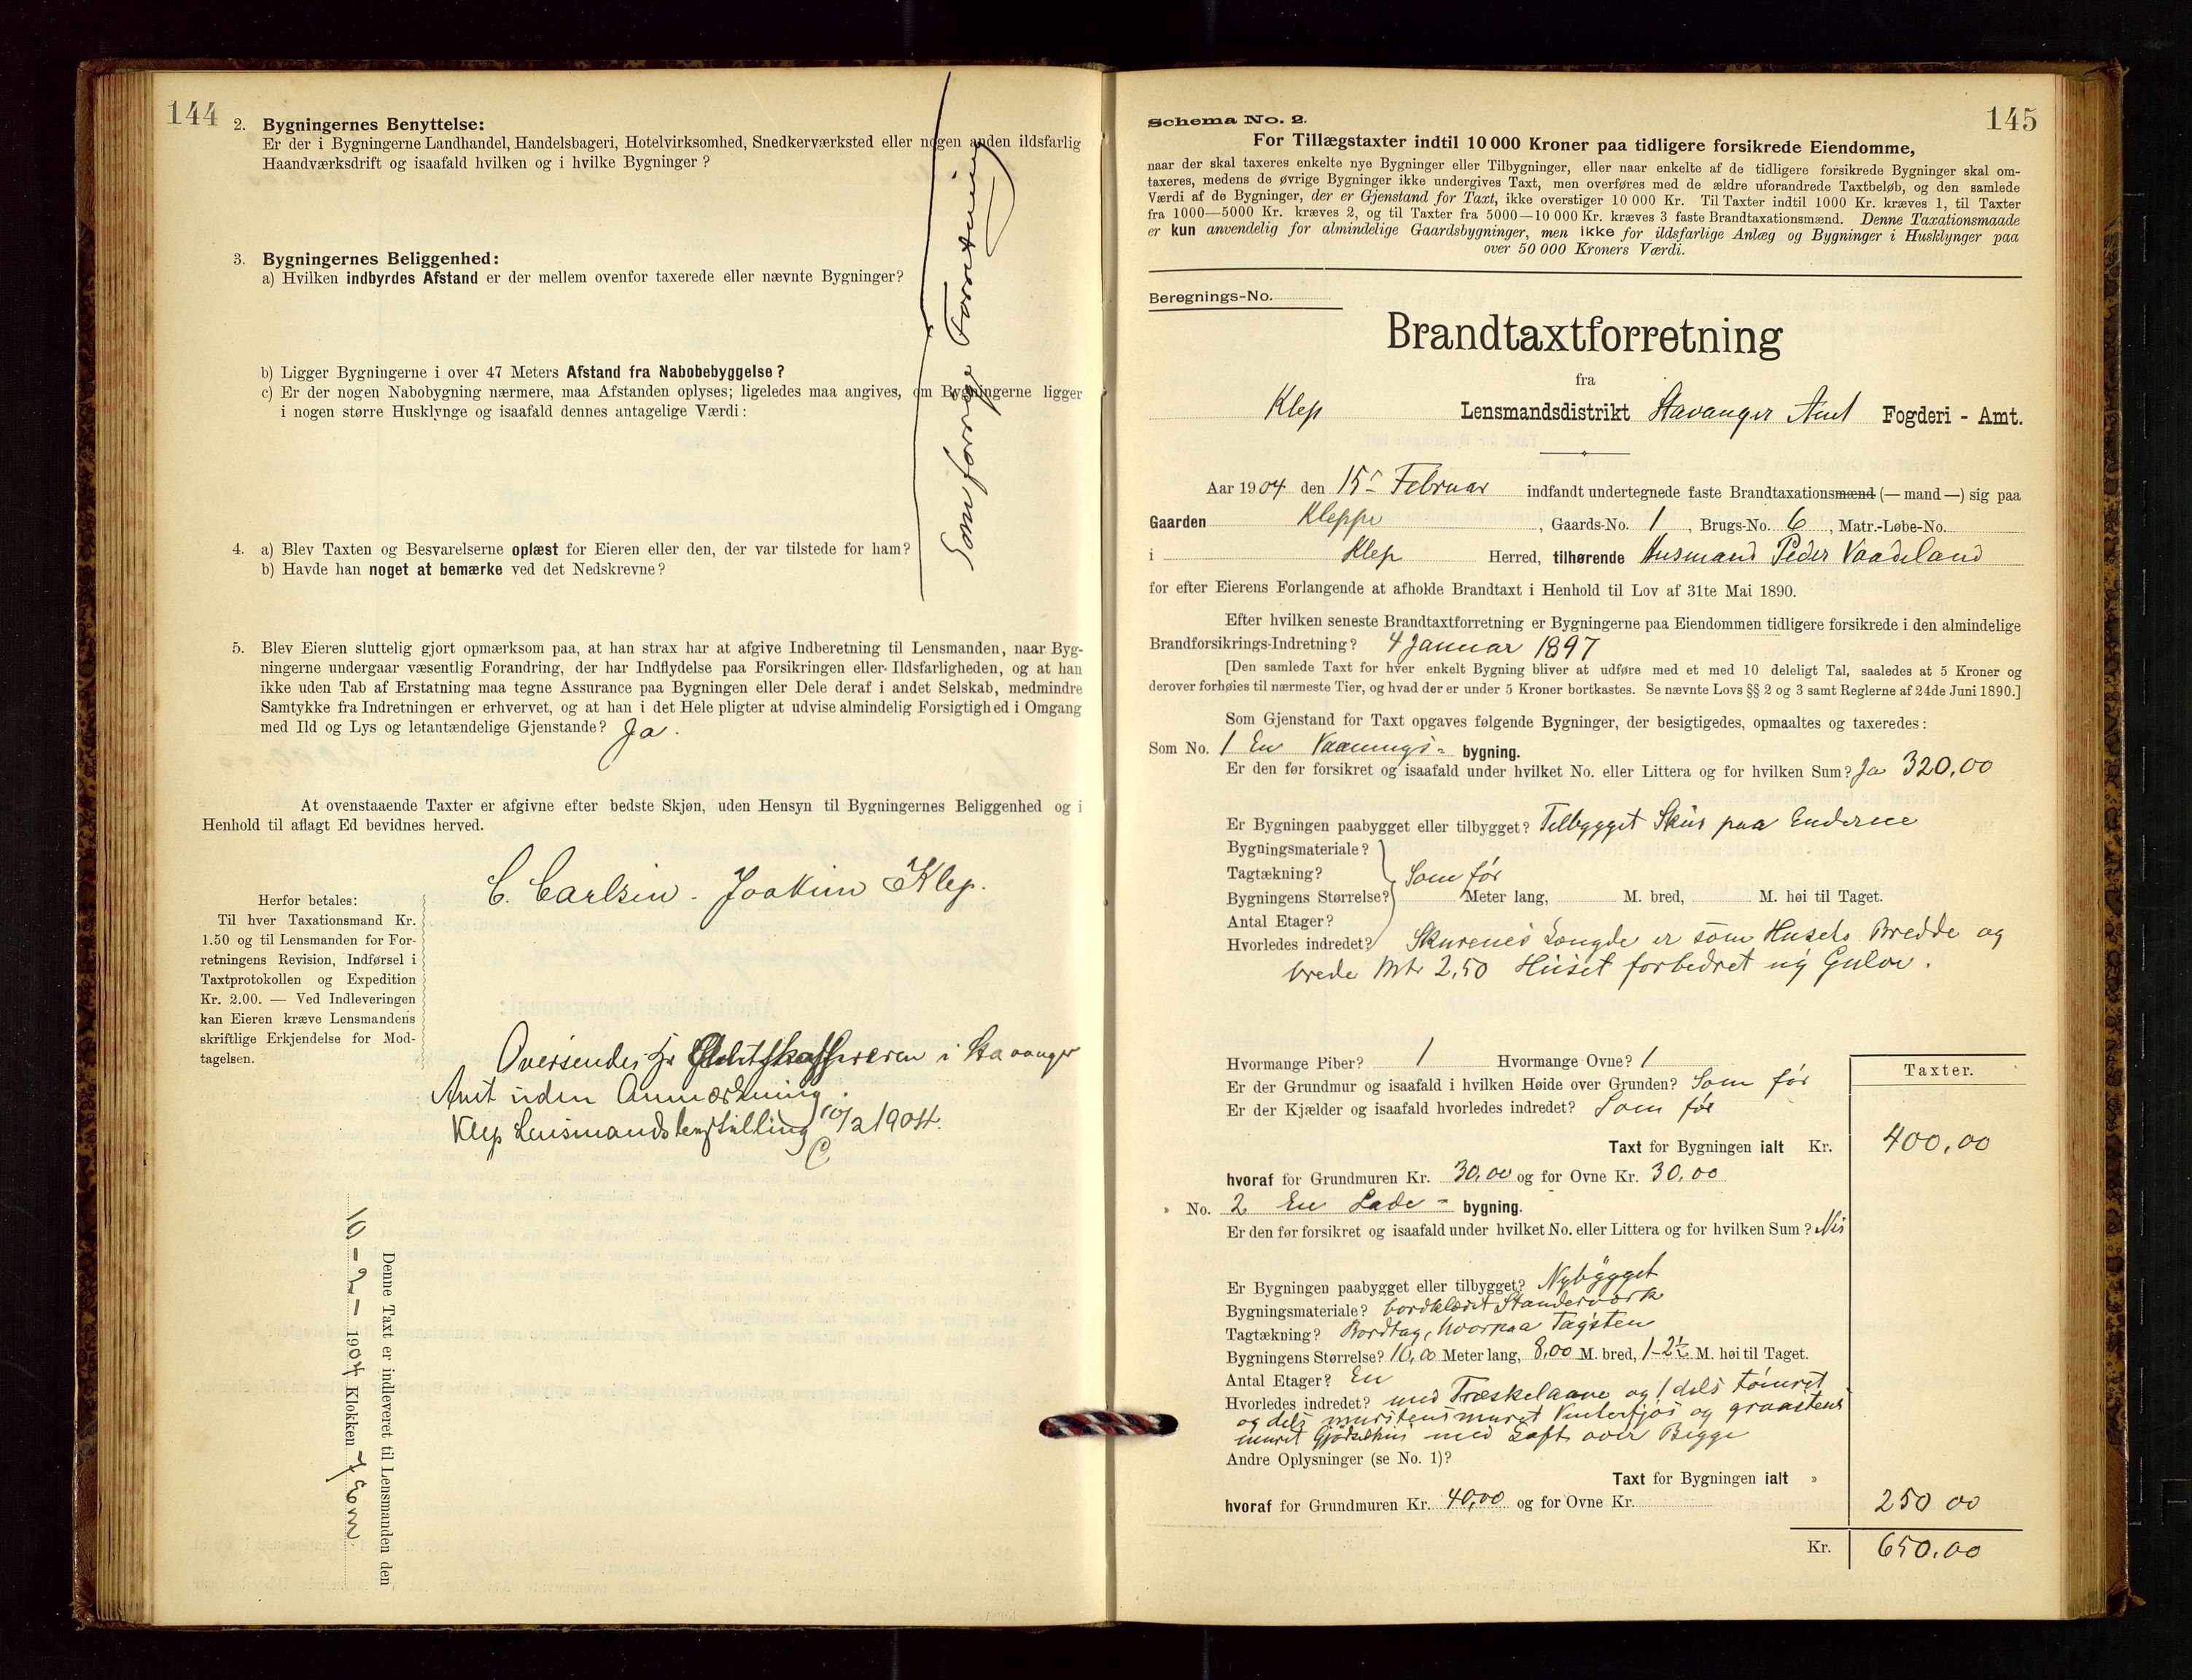 144
2. Bygningernes Benyttelse:
Er der i Bygningerne Landhandel, Handelsbageri, Hotelvirksomhed, Snedkerværksted eller nogen anden ildsfarlig
Haandværksdrift og isaafald hvilken og i hvilke Bygninger?
3. Bygningernes Beliggenhed:
a) Hvilken indbyrdes Afstand er der mellem ovenfor taxerede eller nævnte Bygninger?
b) Ligger Bygningerne i over 47 Meters Afstand fra Nabobebyggelse?
c) Er der nogen Nabobygning nærmere, maa Afstanden oplyses; ligeledes maa angives, om Bygningerne ligger
i nogen større Husklynge og isaafald dennes antagelige Værdi:
Som forrige Forretning
4. a) Blev Taxten og Besvarelserne oplæst for Eieren eller den, der var tilstede for ham?
b) Havde han noget at bemærke ved det Nedskrevne?
5. Blev Eieren sluttelig gjort opmærksom paa, at han strax har at afgive Indberetning til Lensmanden, naar Byg-
ningerne undergaar væsentlig Forandring, der har Indflydelse paa Forsikringen eller Ildsfarligheden, og at han
ikke uden Tab af Erstatning maa tegne Assurance paa Bygningen eller Dele deraf i andet Selskab, medmindre
Samtykke fra Indretningen er erhvervet, og at han i det Hele pligter at udvise almindelig Forsigtighed i Omgang
med Ild og Lys og letantændelige Gjenstande? Ja.
At ovenstaaende Taxter er afgivne efter bedste Skjøn, uden Hensyn til Bygningernes Beliggenhed og i
Henhold til aflagt Ed bevidnes herved.
C. Carlsen - Joakim Klep.
Herfor betales:
Til hver Taxationsmand Kr.
1.50 og til Lensmanden for For-
retningens Revision, Indførsel i
Taxtprotokollen og Expedition
Kr. 2.00. — Ved Indleveringen
kan Eieren kræve Lensmandens
skriftlige Erkjendelse for Mod-
tagelsen.
Oversendes Hr i Stavanger
Amt uden Anmærkning.
Klep Lensmandsbestilling 10/2 1904.
C
Denne Taxt er indleveret til Lensmanden den
10 - 2 - 1904 Klokken 7 Em
145
Schema No. 2.
For Tillægstaxter indtil 10 000 Kroner paa tidligere forsikrede Eiendomme,
naar der skal taxeres enkelte nye Bygninger eller Tilbygninger, eller naar enkelte af de tidligere forsikrede Bygninger skal om-
taxeres, medens de øvrige Bygninger ikke undergives Taxt, men overføres med de ældre uforandrede Taxtbeløb, og den samlede
Værdi af de Bygninger, der er Gjenstand for Taxt, ikke overstiger 10 000 Kr. Til Taxter indtil 1000 Kr. kræves 1, til Taxter
fra 1000—5000 Kr. kræves 2, og til Taxter fra 5000—10 000 Kr. kræves 3 faste Brandtaxationsmænd. Denne Taxationsmaade
er kun anvendelig for almindelige Gaardsbygninger, men ikke for ildsfarlige Anlæg og Bygninger i Husklynger paa
over 50 000 Kroners Værdi.
Beregnings-No.
Brandtaxtforretning
fra
Klep Lensmandsdistrikt Stavanger Amt Fogderi - Amt.
Aar 1904 den 15 Februar indfandt undertegnede faste Brandtaxationsmænd (— mand —) sig paa
Gaarden Kleppe, Gaards-No. 1, Brugs-No. 6, Matr.-Løbe-No.
i Klep Herred, tilhørende Husmand Peder Vaadeland
for efter Eierens Forlangende at afholde Brandtaxt i Henhold til Lov af 31te Mai 1890.
Efter hvilken seneste Brandtaxtforretning er Bygningerne paa Eiendommen tidligere forsikrede i den almindelige
Brandforsikrings-Indretning? 4 Januar 1897
[Den samlede Taxt for hver enkelt Bygning bliver at udføre med et med 10 deleligt Tal, saaledes at 5 Kroner og
derover forhøies til nærmeste Tier, og hvad der er under 5 Kroner bortkastes. Se nævnte Lovs §§ 2 og 3 samt Reglerne af 24de Juni 1890.]
Som Gjenstand for Taxt opgaves følgende Bygninger, der besigtigedes, opmaaltes og taxeredes:
Som No. 1 En Vaanings- bygning.
Er den før forsikret og isaafald under hvilket No. eller Littera og for hvilken Sum? Ja 320,00
Er Bygningen paabygget eller tilbygget? Tilbygget Skur paa Enderne
Bygningsmateriale?
Tagtækning? Som før
Bygningens Størrelse? Meter lang, M. bred, M. høi til Taget.
Antal Etager?
Hvorledes indredet? Skurenes Længde er som Husets Bredde og
brede Mtr 2,50 Huset forbedret ny Gulve.
Hvormange Piber? 1 Hvormange Ovne? 1
Er der Grundmur og isaafald i hvilken Høide over Grunden? Som før
Er der Kjælder og isaafald hvorledes indredet? Som før
Taxter.
Taxt for Bygningen ialt Kr. 400,00
hvoraf for Grundmuren Kr. 30,00 og for Ovne Kr. 30,00
» No. 2 En Lade- bygning.
Er den før forsikret og isaafald under hvilket No. eller Littera og for hvilken Sum? Nei
Er Bygningen paabygget eller tilbygget? Nybygget
Bygningsmateriale? bordklædt Standerværk
Tagtækning? Bordtag, hvorpaa Tagsten
Bygningens Størrelse? 10,00 Meter lang, 8,00 M. bred, 1-2½ M. høi til Taget.
Antal Etager? En
Hvorledes indredet? med Træskelaave og 1 dels tømret
og dels murstensmuret Vinterfjøs og graastens
muret Gjødselhus med Loft over Begge
Andre Oplysninger (se No. 1)?
Taxt for Bygningen ialt »
hvoraf for Grundmuren Kr. 40,00 og for Ovne Kr. 250 00
Kr. 650,00